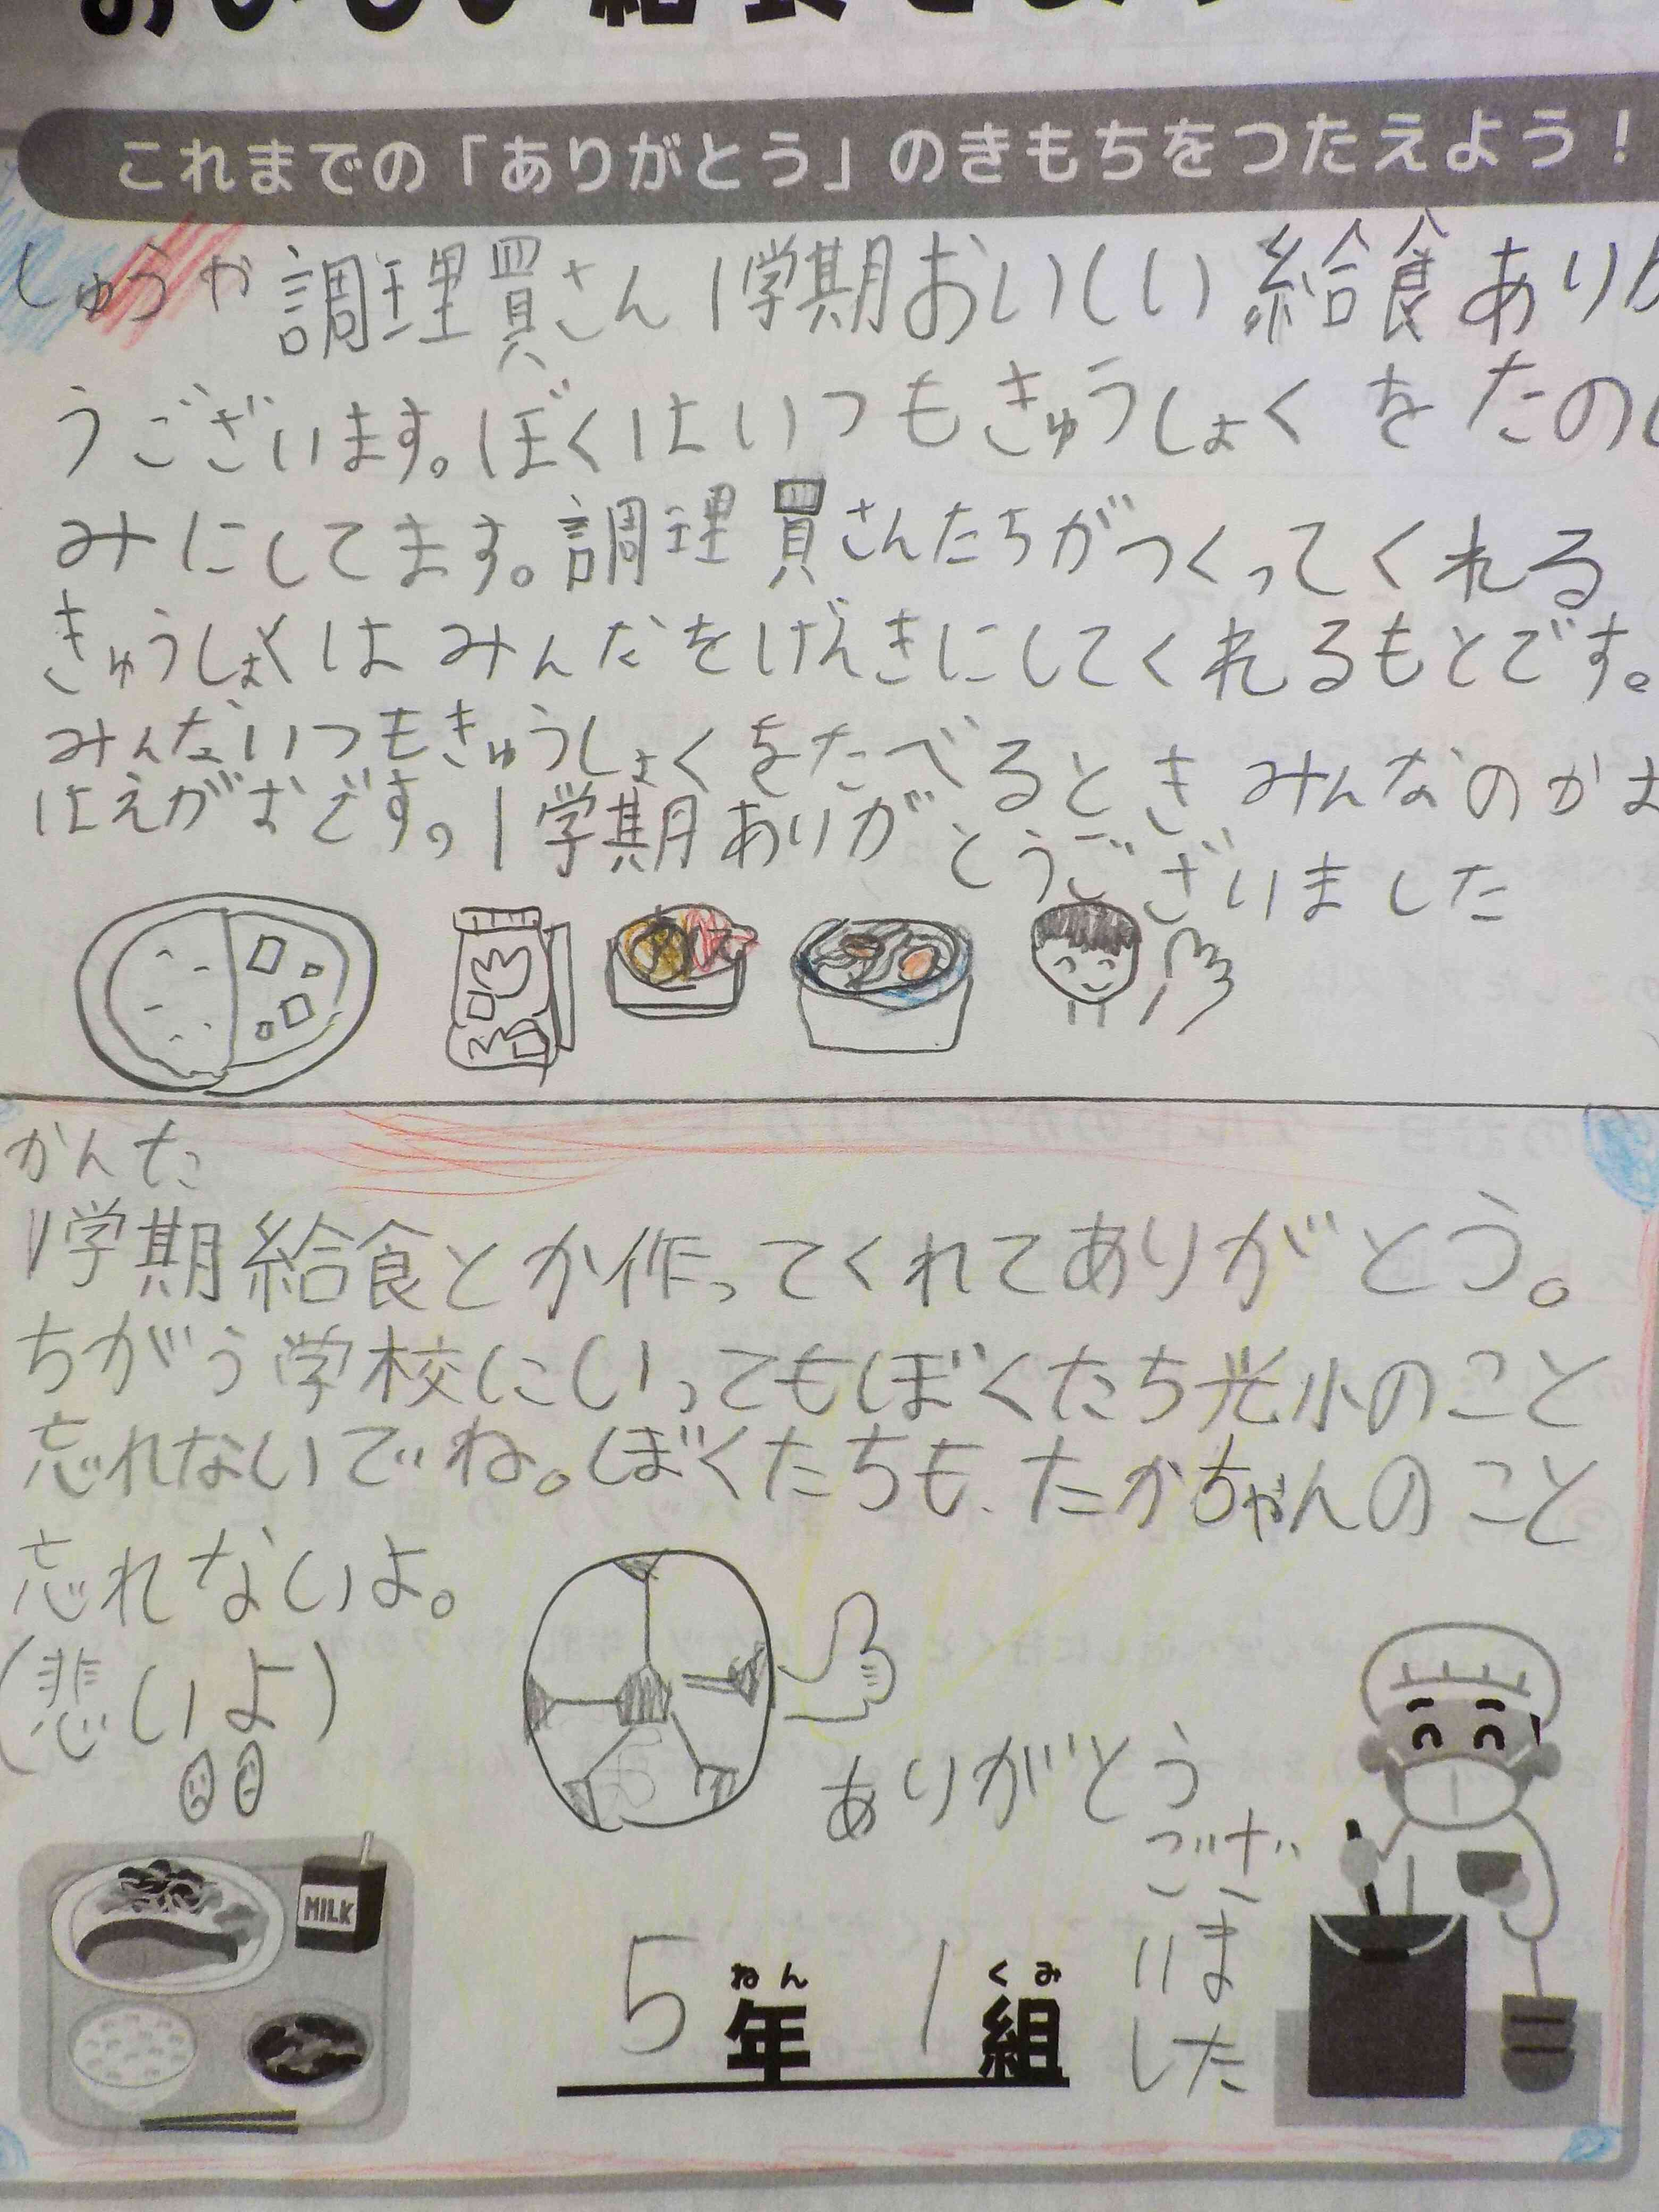 これまでの「ありがとう」のきもちをつたえよう！
しゅうや 調理員さん1学期おいしい給食あり
うございます。ぼくはいつもきゅうしょくをたのし
みにしてます。調理員さんたちがつくってくれる
きゅうしょくはみんなをげんきにしてくれるもとです。
みんないつもきゅうしょくをたべるときみんなのかお
はえがおです。1学期ありがとうございました
かんた
1学期給食とか作ってくれてありがとう。
ちがう学校にいってもぼくたち光小のこと
忘れないでね。ぼくたちも、たかちゃんのこと
忘れないよ。
(悲しいよ)
ありがとう
ござ
いま
した
MILK
ねん くみ
5年 1組